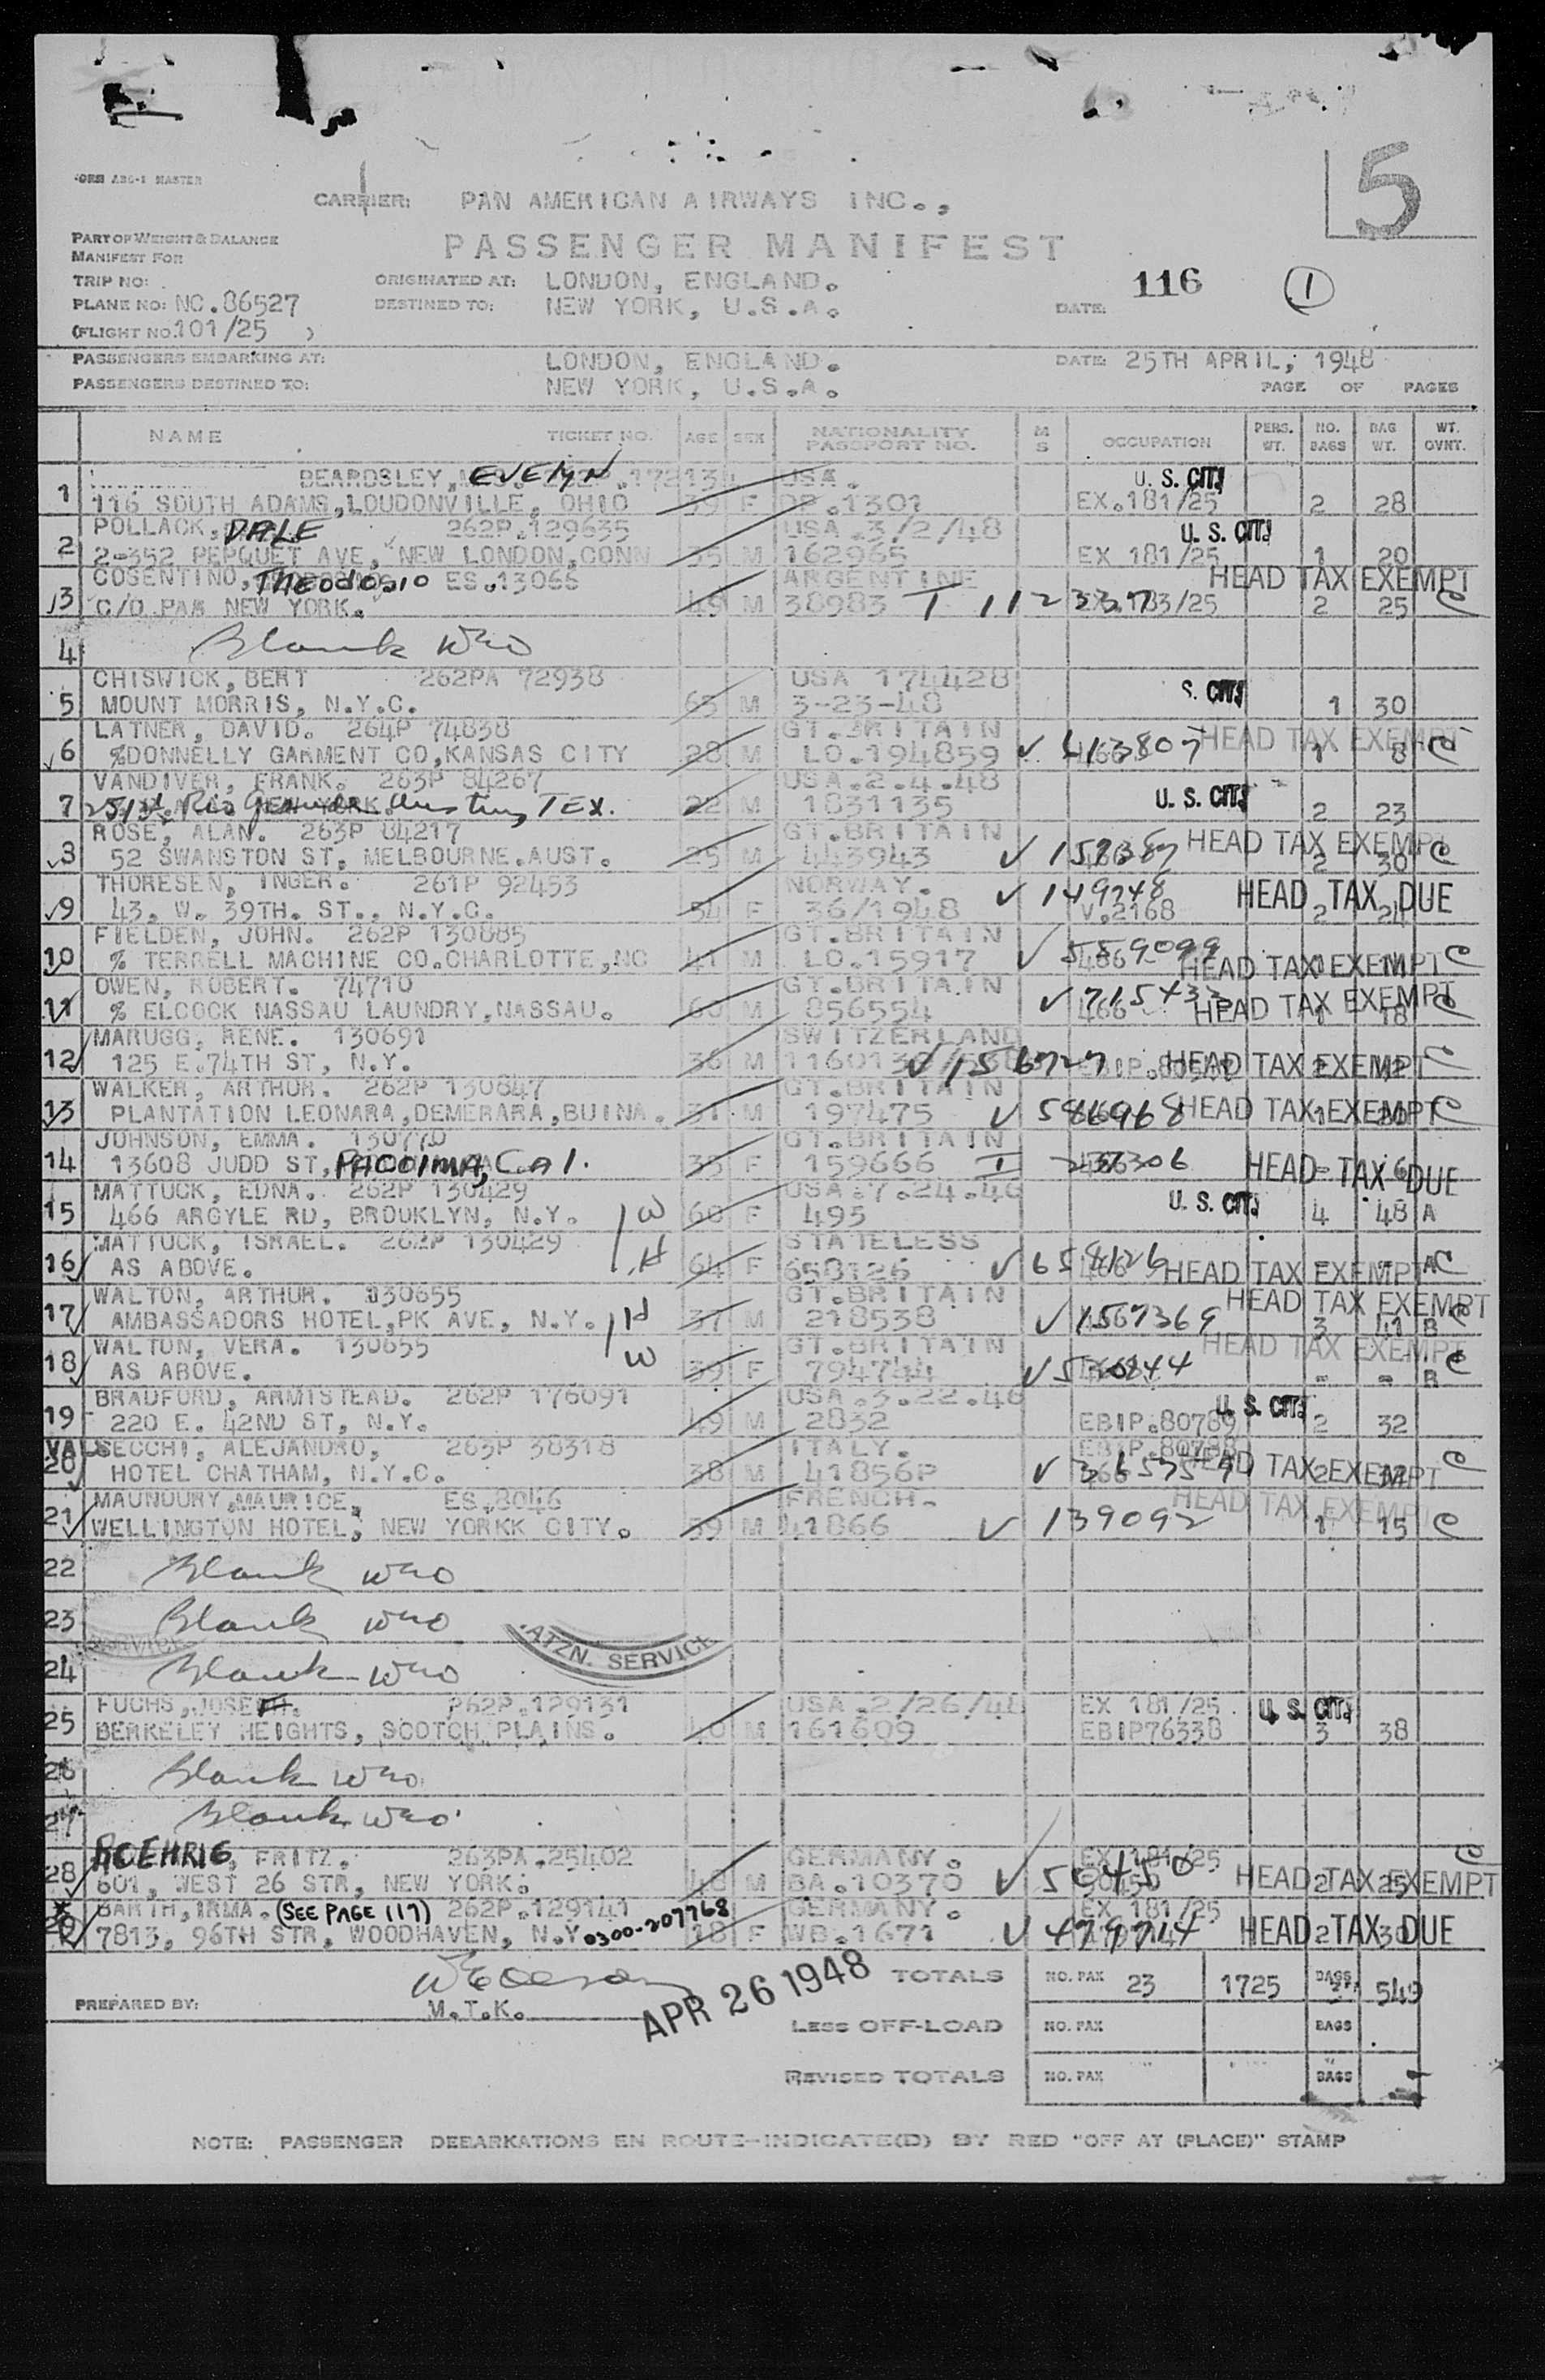 FORM ABC-1 MASTER
5
CARRIER: PAN AMERICAN AIRWAYS INC.,
PART OF WEIGHT & BALANCE
MANIFEST FOR
PASSENGER MANIFEST
TRIP NO:
ORIGINATED AT: LONDON, ENGLAND.
116 1
PLANE NO: NC.86527
DESTINED TO: NEW YORK, U.S.A.
DATE:
(FLIGHT NO: 101/25 )
PASSENGERS EMBARKING AT: LONDON, ENGLAND. DATE: 25TH APRIL, 1948
PASSENGERS DESTINED TO: NEW YORK, U.S.A. PAGE OF PAGES
NAME TICKET NO. AGE SEX NATIONALITY PASSPORT NO. M S OCCUPATION PERS. WT. NO. BAGS BAG WT. WT. OVNT.
BEARDSLEY, EVELYN USA. U. S. CIT.
1 116 SOUTH ADAMS, LOUDONVILLE, OHIO 39 F DP.1301 EX.181/25 2 28
POLLACK, DALE 262P.129635 USA.3/2/48 U. S. CIT.
2 2-352 PEPQUET AVE, NEW LONDON, CONN 35 M 162965 EX 181/25 1 20
COSENTINO, THEODOSIO ES.13066 ARGENTINE HEAD TAX EXEMPT
3 C/O PAA NEW YORK. 49 M 38983 I 2 25 C
4 Blank WEO
CHISWICK, BERT 262PA 72938 USA 174428
5 MOUNT MORRIS, N.Y.C. 65 M 3-23-48 S. CIT. 1 30
LATNER, DAVID. 264P 74838 GT.BRITAIN
6 %DONNELLY GARMENT CO, KANSAS CITY 28 M LO.194859 HEAD TAX EXEMPT 1 8 C
VANDIVER, FRANK. 263P 84267 USA.2.4.48
7 Rio Grande Austin, TEX. 22 M 1831135 U. S. CIT. 2 23
ROSE, ALAN. 263P 84217 GT.BRITAIN HEAD TAX EXEMPT
8 52 SWANSTON ST, MELBOURNE.AUST. 25 M 443943 2 30 C
THORESEN, INGER. 261P 92453 NORWAY. 149748 HEAD TAX DUE
9 43. W. 39TH. ST., N.Y.C. 54 F 36/1948 V.2168 2 24
FIELDEN, JOHN. 262P 130885 GT.BRITAIN 559099
10 % TERRELL MACHINE CO.CHARLOTTE, NC 41 M LO.15917 HEAD TAX EXEMPT C
OWEN, ROBERT. 74710 GT.BRITAIN
11 % ELCOCK NASSAU LAUNDRY, NASSAU. 60 M 856554 HEAD TAX EXEMPT 1 18 C
MARUGG, RENE. 130691 SWITZERLAND
12 125 E.74TH ST, N.Y. 36 M 156727 HEAD TAX EXEMPT C
WALKER, ARTHUR. 262P 130847 GT.BRITAIN
13 PLANTATION LEONARA, DEMERARA, BUINA. 31 M 197475 586968 HEAD TAX EXEMPT C
JOHNSON, EMMA. 130770 GT.BRITAIN
14 13608 JUDD ST, PACOIMA, CAL. 35 F 159666 I 237306 HEAD TAX DUE
MATTUCK, EDNA. 262P 130429 USA.7.24.46
15 466 ARGYLE RD, BROUKLYN, N.Y. W 60 F 495 U. S. CIT. 4 48 A
MATTUCK, ISRAEL. 262P 130429 STATELESS
16 AS ABOVE. H 64 F 658126 658126 HEAD TAX EXEMPT AC
WALTON, ARTHUR. 130655 GT.BRITAIN HEAD TAX EXEMPT
17 AMBASSADORS HOTEL, PK AVE, N.Y. H 37 M 218538 1567369 3 41 B C
WALTON, VERA. 130655 GT.BRITAIN HEAD TAX EXEMPT
18 AS ABOVE. W 39 F 794744 - - B C
BRADFORD, ARMISTEAD. 262P 176091 USA.3.22.46 U. S. CIT.
19 220 E. 42ND ST, N.Y. 49 M 2832 EBIP.80789 2 32
VALSECCHI, ALEJANDRO, 263P 38318 ITALY. EBIP.80788
20 HOTEL CHATHAM, N.Y.C. 38 M 41856P HEAD TAX EXEMPT 2 32 C
MAUNOURY, MAURICE, ES.8046 FRENCH. HEAD TAX EXEMPT
21 WELLINGTON HOTEL, NEW YORKK CITY. 59 M 41866 139092 1 15 C
22 Blank WEO
23 Blank WEO
ATZN. SERVICE
24 Blank WEO
FUCHS, JOSEPH. 262P.129131 USA.2/26/48 EX 181/25 U. S. CIT.
25 BERKELEY HEIGHTS, SCOTCH PLAINS. 40 M 161609 EBIP76338 3 38
26 Blank WEO
27 Blank WEO
ROEHRIG, FRITZ. 263PA.25402 GERMANY. EX 181/25 C
28 601, WEST 26 STR, NEW YORK. 48 M BA.10370 50450 HEAD TAX EXEMPT 2 25
BARTH, IRMA. (SEE PAGE 117) 262P.129141 GERMANY. EX 181/25
29 7813, 96TH STR, WOODHAVEN, N.Y. 0300-207768 18 F WB.1671 479714 HEAD TAX DUE 2 30
TOTALS NO. PAX 23 1725 BAGS 549
PREPARED BY: M.T.K. APR 26 1948
LESS OFF-LOAD NO. PAX BAGS
REVISED TOTALS NO. PAX BAGS
NOTE: PASSENGER DEBARKATIONS EN ROUTE-INDICATE(D) BY RED "OFF AT (PLACE)" STAMP